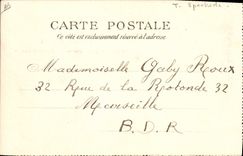 CARTE POSTALE
Ce côté est exclusivement réservé à l'adresse
Mademoiselle Gaby Roux
32 Rue de la Rotonde 32
Marseille
B. D. R